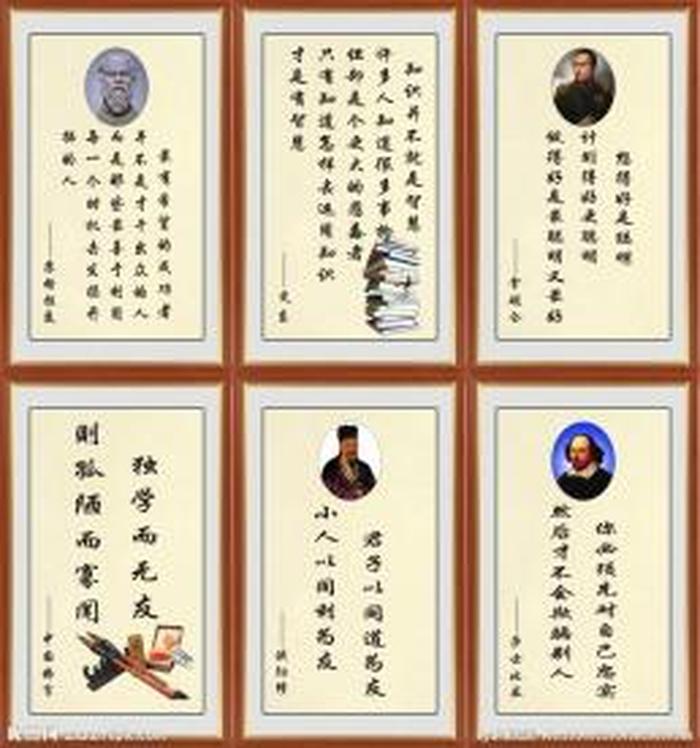 最有希望的成功者
并不是才干出众的人
而是那些最善于利用
每一个时机去发掘开
拓的人
——苏格拉底
知识并不就是智慧
许多人知道很多事物
但却是个更大的愚蠢者
只有知道怎样去运用知识
才是有智慧
想得好是聪明
计划得好更聪明
做得好是最聪明又最好
——拿破仑
独学而无友
则孤陋而寡闻
——中国格言
君子以同道为友
小人以同利为友
——欧阳修
你必须先对自己忠实
然后才不会欺骗别人
——莎士比亚